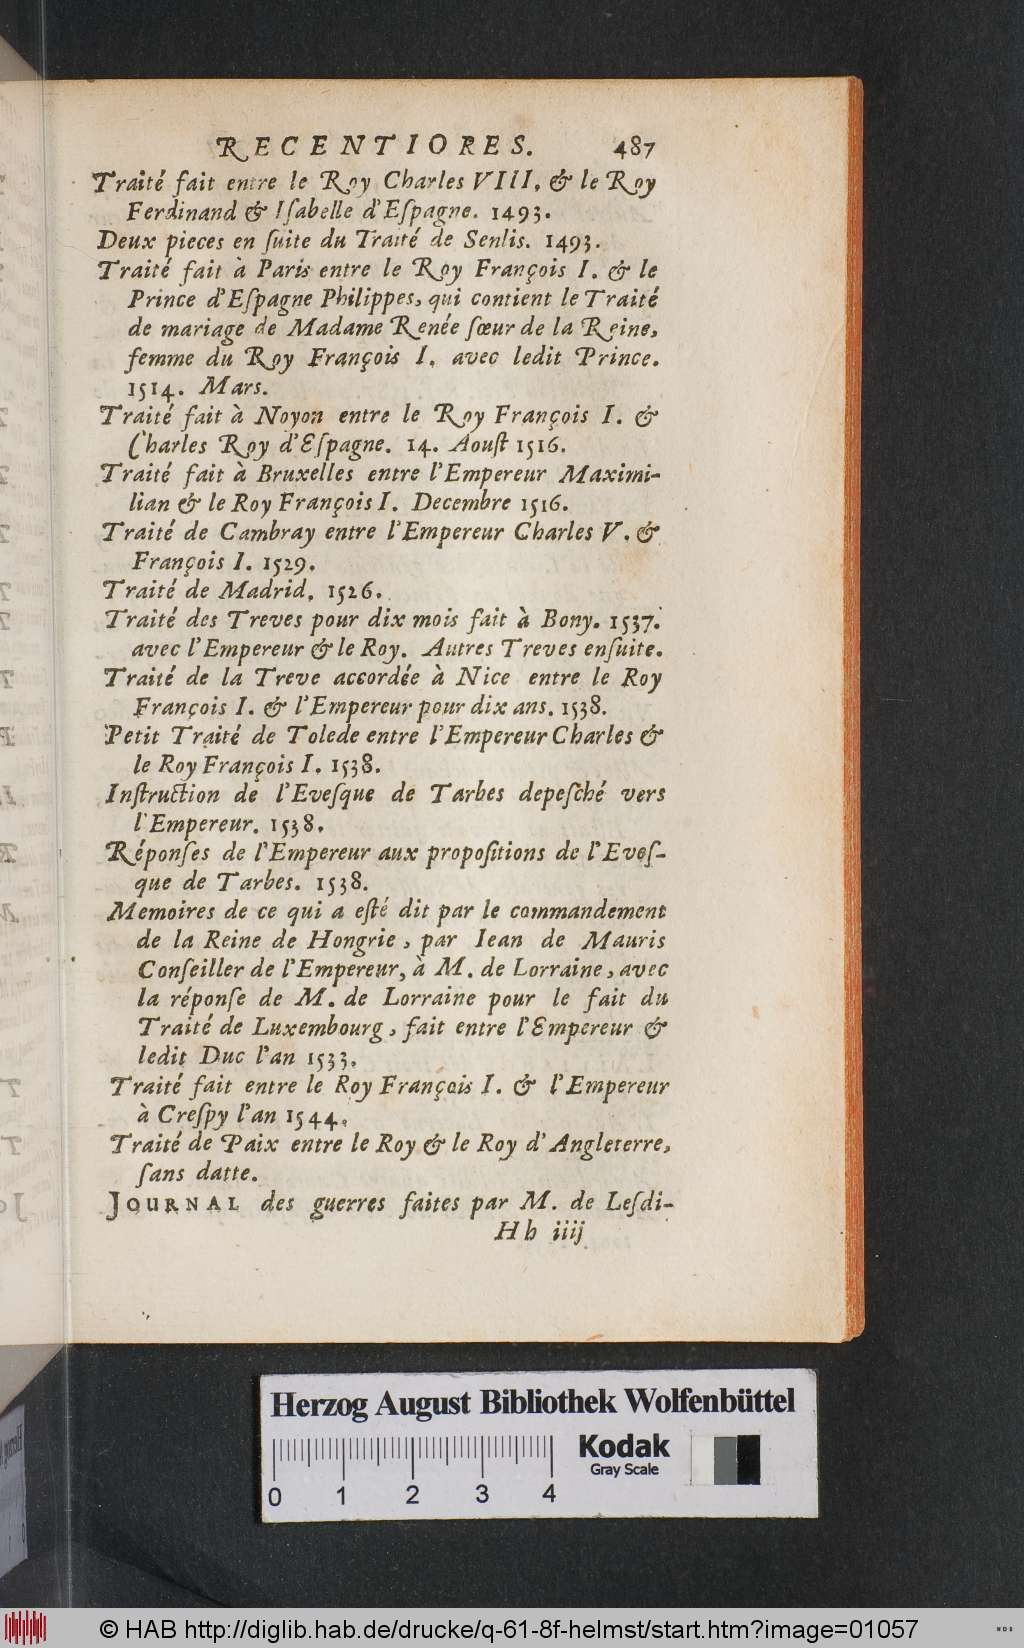 RECENTIORES. 487
Traité fait entre le Roy Charles VIII. & le Roy
Ferdinand & Iſabelle d'Eſpagne. 1493.
Deux pieces en ſuite du Traité de Senlis. 1493.
Traité fait à Paris entre le Roy François I. & le
Prince d'Eſpagne Philippes, qui contient le Traité
de mariage de Madame Renée ſœur de la Reine,
femme du Roy François I. avec ledit Prince.
1514. Mars.
Traité fait à Noyon entre le Roy François I. &
Charles Roy d'Eſpagne. 14. Aouſt 1516.
Traité fait à Bruxelles entre l'Empereur Maximi-
lian & le Roy François I. Decembre 1516.
Traité de Cambray entre l'Empereur Charles V. &
François I. 1529.
Traité de Madrid. 1526.
Traité des Treves pour dix mois fait à Bony. 1537.
avec l'Empereur & le Roy. Autres Treves enſuite.
Traité de la Treve accordée à Nice entre le Roy
François I. & l'Empereur pour dix ans. 1538.
Petit Traité de Tolede entre l'Empereur Charles &
le Roy François I. 1538.
Inſtruction de l'Eveſque de Tarbes depeſché vers
l'Empereur. 1538.
Réponſes de l'Empereur aux propoſitions de l'Eveſ-
que de Tarbes. 1538.
Memoires de ce qui a eſté dit par le commandement
de la Reine de Hongrie, par Iean de Mauris
Conſeiller de l'Empereur, à M. de Lorraine, avec
la réponſe de M. de Lorraine pour le fait du
Traité de Luxembourg, fait entre l'Empereur &
ledit Duc l'an 1533.
Traité fait entre le Roy François I. & l'Empereur
à Creſpy l'an 1544.
Traité de Paix entre le Roy & le Roy d'Angleterre,
ſans datte.
JOURNAL des guerres faites par M. de Leſdi-
Hh iiij
Herzog August Bibliothek Wolfenbüttel
Kodak
Gray Scale
0 1 2 3 4
© HAB http://diglib.hab.de/drucke/q-61-8f-helmst/start.htm?image=01057